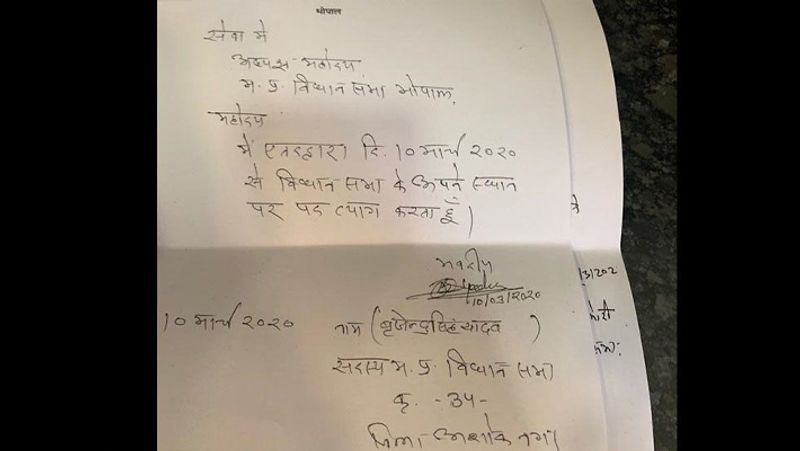 भोपाल
सेवा में
अध्यक्ष महोदय
म. प्र. विधान सभा भोपाल,
महोदय
मैं एतद्द्वारा दि. १० मार्च २०२०
से विधान सभा के अपने स्थान
पर पद त्याग करता हूँ।
भवदीय
10/03/2020
१० मार्च २०२०
नाम (बृजेन्द्र सिंह यादव)
सदस्य म. प्र. विधान सभा
क्र. - 34 -
जिला - अशोक नगर